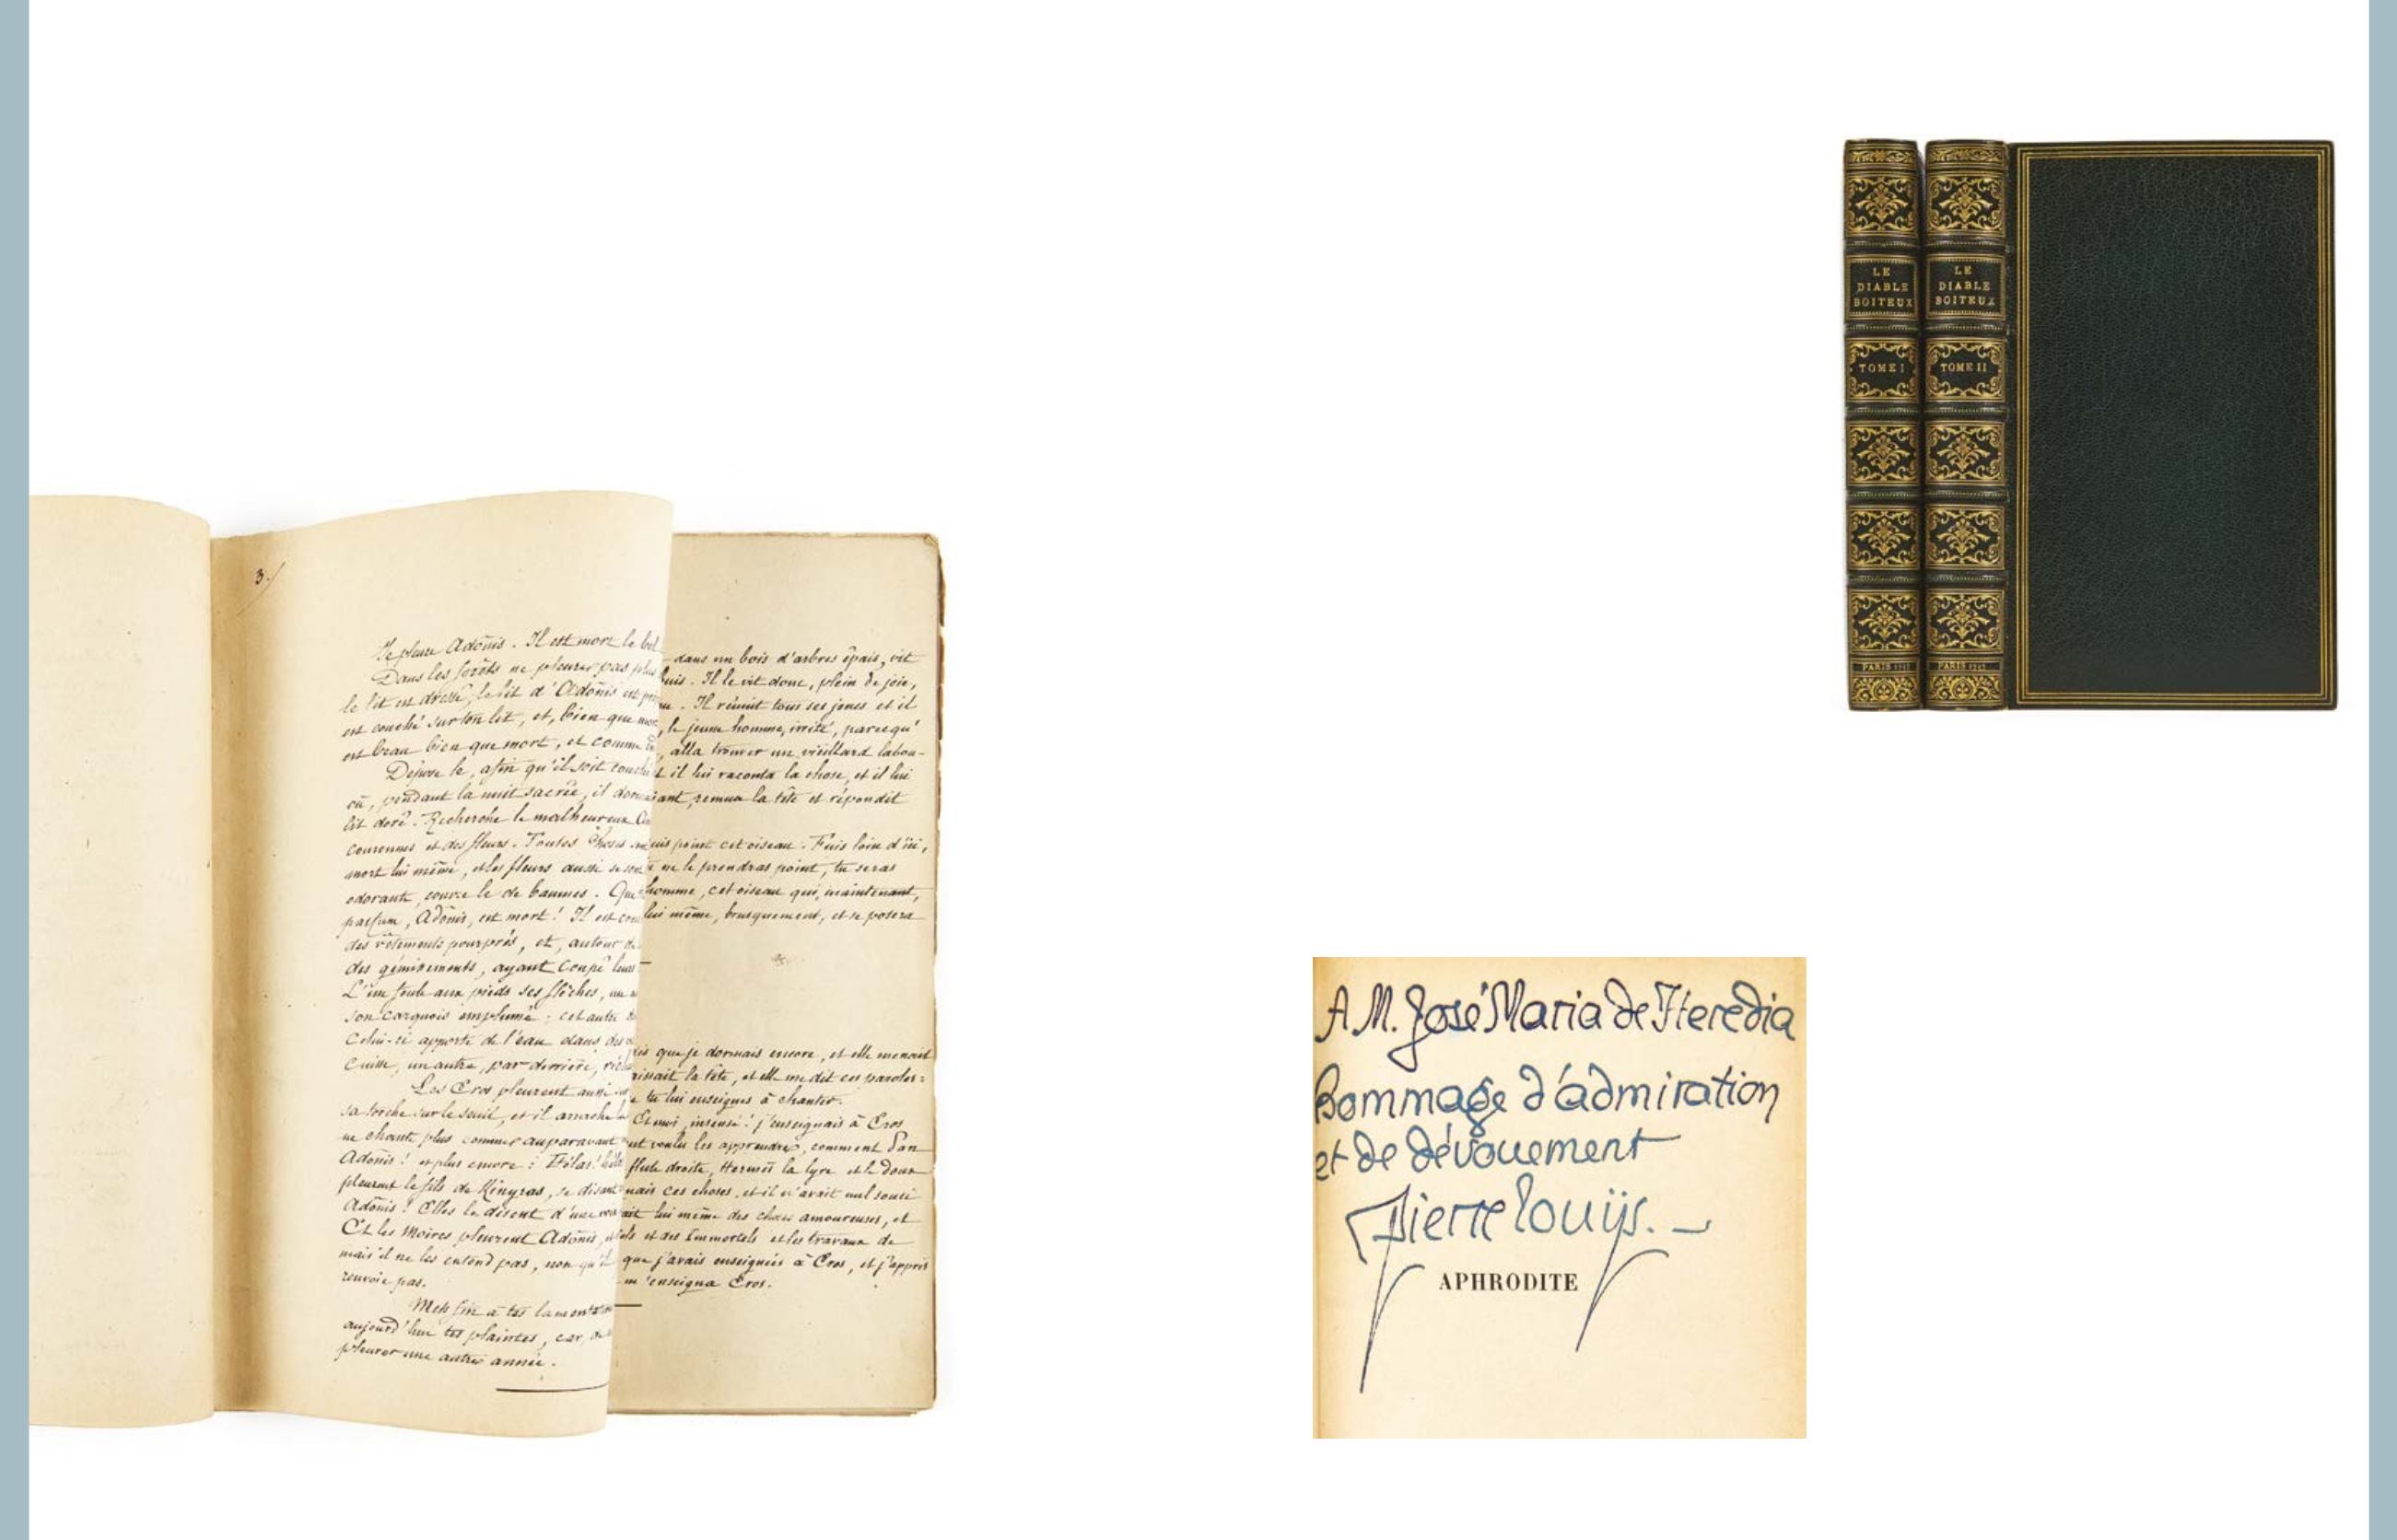 3.
Je pleure Adônis. Il est mort le bel
Dans les forêts ne pleurer pas plus
le lit est dressé, le lit d'Adônis est
est couché sur ton lit, et, bien que mort,
est beau bien que mort, et comme
Dépose le, afin qu'il soit couché
où, pendant la nuit sacrée, il
lit doré. Recherche le malheureux
couronnes et des fleurs. Toutes choses
mort lui même, et les fleurs aussi se sont
odorants, couvre le de baumes. Que
parfum, Adônis, est mort! Il est
des vêtements pourprés, et, autour de
des gémissements, ayant coupé leurs
L'un foule aux pieds ses flèches, un
son carquois emplumé; cet autre
Celui-ci apporte de l'eau dans des
cuisse, un autre, par derrière,
Les Eros pleurent aussi
sa torche sur le seuil, et il arrache
ne chante plus comme auparavant
Adônis! et plus encore: Hélas! hélas
pleurent le fils de Kinyras, se disant
Adônis! Elles le disent d'une
Et les Moires pleurent Adônis,
mais il ne les entend pas, non qu'il
renvoie pas.
Mets fin à tes lamentations
aujourd'hui tes plaintes, car,
pleurer une autre année.
dans un bois d'arbres épais, vit
buis. Il le vit donc, plein de joie,
Il réunit tous ses joncs et il
le jeune homme, irrité, parcequ'
alla trouver un vieillard labou-
et il lui raconta la chose, et il lui
remua la tête et répondit
point cet oiseau. Fuis loin d'ici,
ne le prendras point, tu seras
homme, cet oiseau qui, maintenant,
lui même, brusquement, et se posera
que je dormais encore, et elle menait
baissait la tête, et elle me dit ces paroles:
tu lui enseignes à chanter.
Et moi, insensé! j'enseignais à Eros
voulu les apprendre, comment Pan
flute droite, Hermès la lyre et le doux
ces choses, et il n'avait nul souci
lui même des choses amoureuses, et
et des Immortels et les travaux de
que j'avais enseignées à Eros, et j'appris
m'enseigna Eros.
LE
DIABLE
BOITEUX
TOME I
PARIS
LE
DIABLE
BOITEUX
TOME II
PARIS
A M. José Maria de Heredia
Hommage d'admiration
et de dévouement
Pierre Louijs.
APHRODITE